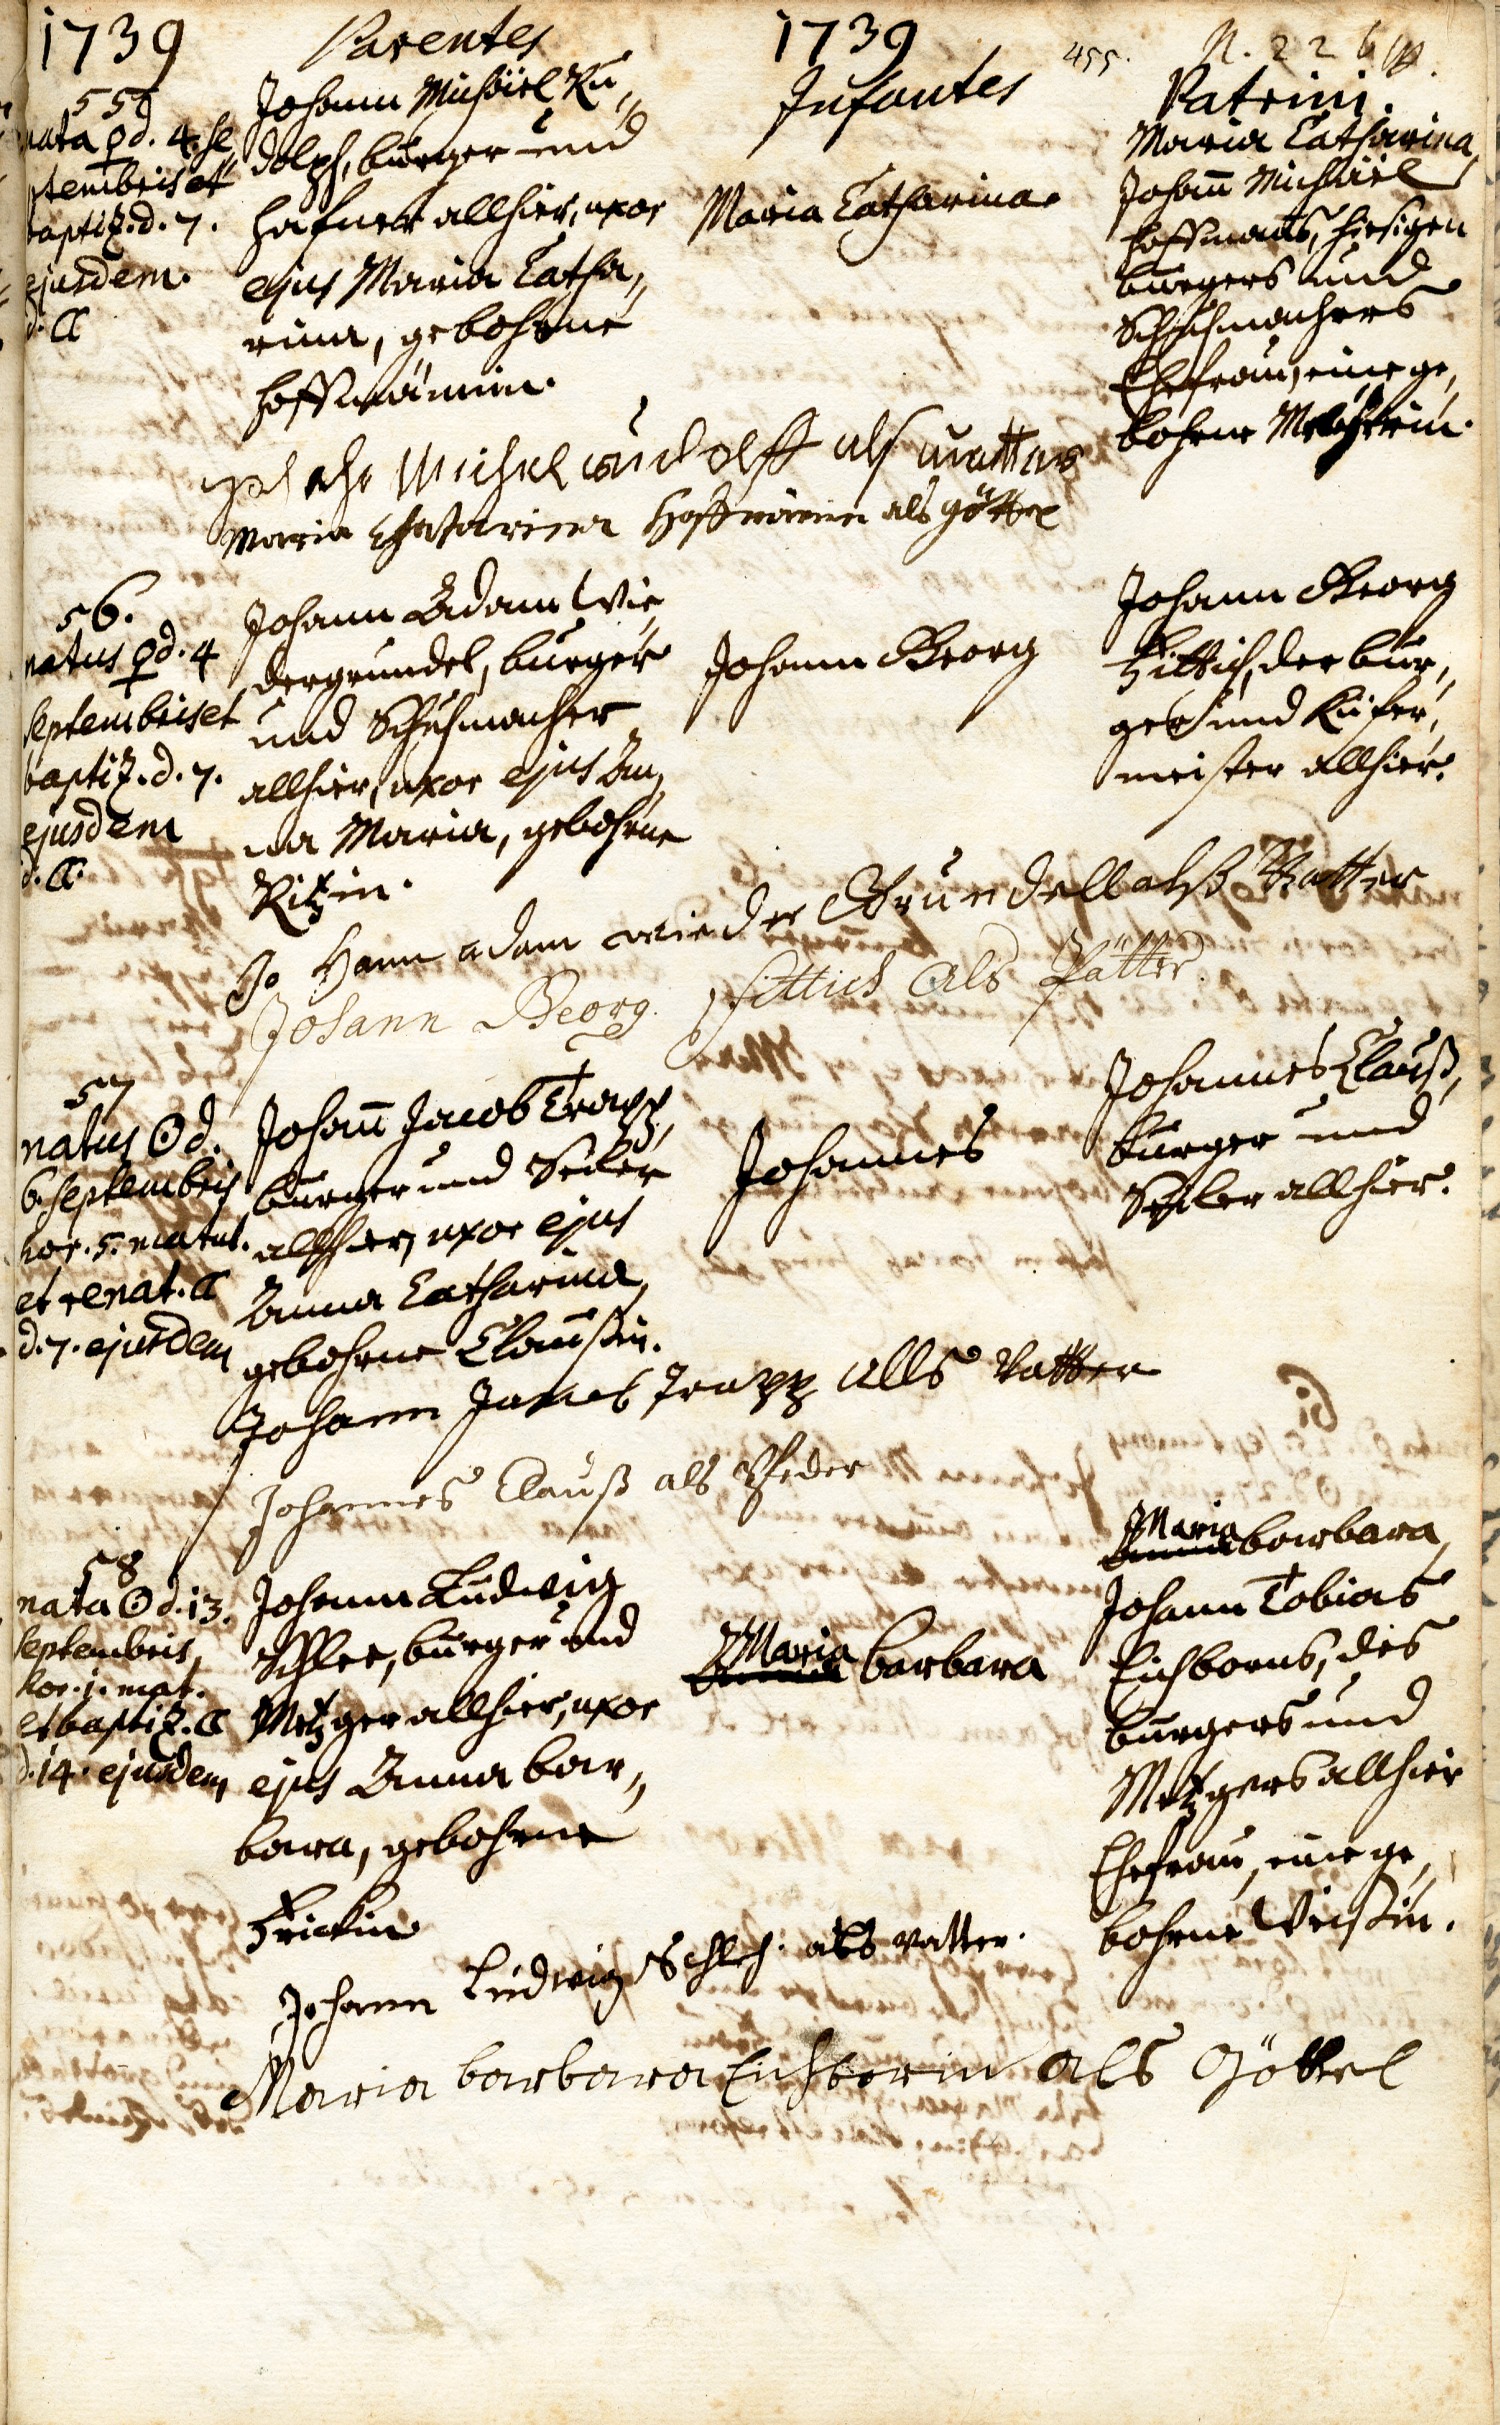 1739 Parentes 1739 455. N. 226
Infantes Patrini.
55
nata ♀ d. 4. Se
ptembris et
baptiz. d. 7.
ejusdem.
d. C
Johann Michäel Ru„
dolph, burger und
hafner allhier, uxor
ejus Maria Catha„
rina, gebohrne
Hoffmännin.
Maria Catharina
Maria Catharina,
Johan̄ Michäel
Hoffmanns, hiesigen
burgers und
Schuhmachers
Ehefrau, eine ge„
bohrne
Michel rudolff als vatter
Maria Chatarina Hoffmänin als göttel
56.
natus ♀ d. 4
Septembris et
baptiz. d. 7.
ejusdem
d. C.
Johann Adam Wie„
dergrundel, burger
und Schuhmacher
allhier, uxor ejus An„
na Maria, gebohrne
Ritzin.
Johann Georg
Johann Georg
Fittich, der bur„
ger und Küfer„
meister allhier.
Jo Hann adam wieder Grundell alß Vatter
Johann Georg. Fittich Als Pfätter.
57
natus ☉ d.
6. Septembris
hor. 5. matut.
et renat. C
d. 7. ejusdem
Johan̄ Jacob Trapp,
burger und Seiler
allhier, uxor ejus
Anna Catharina,
gebohrne Claußin.
Johannes
Johannes Clauß,
burger und
Seiler allhier.
Johann Jakob Trapp alls Vatter
Johannes Clauß als Pfeder
58
nata ☉ d. 13.
Septembris,
hor. 1. mat.
et baptiz. C
d. 14. ejusdem
Johann Ludwig
Schlee, burger und
Metzger allhier, uxor
ejus Anna bar„
bara, gebohrne
Frickin
Maria
Anna barbara
Maria
Anna barbara,
Johann Tobias
Eichborns, des
burgers und
Metzgers allhier
Ehefrau, eine ge„
bohrne Weißin.
Johann Ludwig Schleh. als vatter.
Maria barbara Eichborin als Göttel